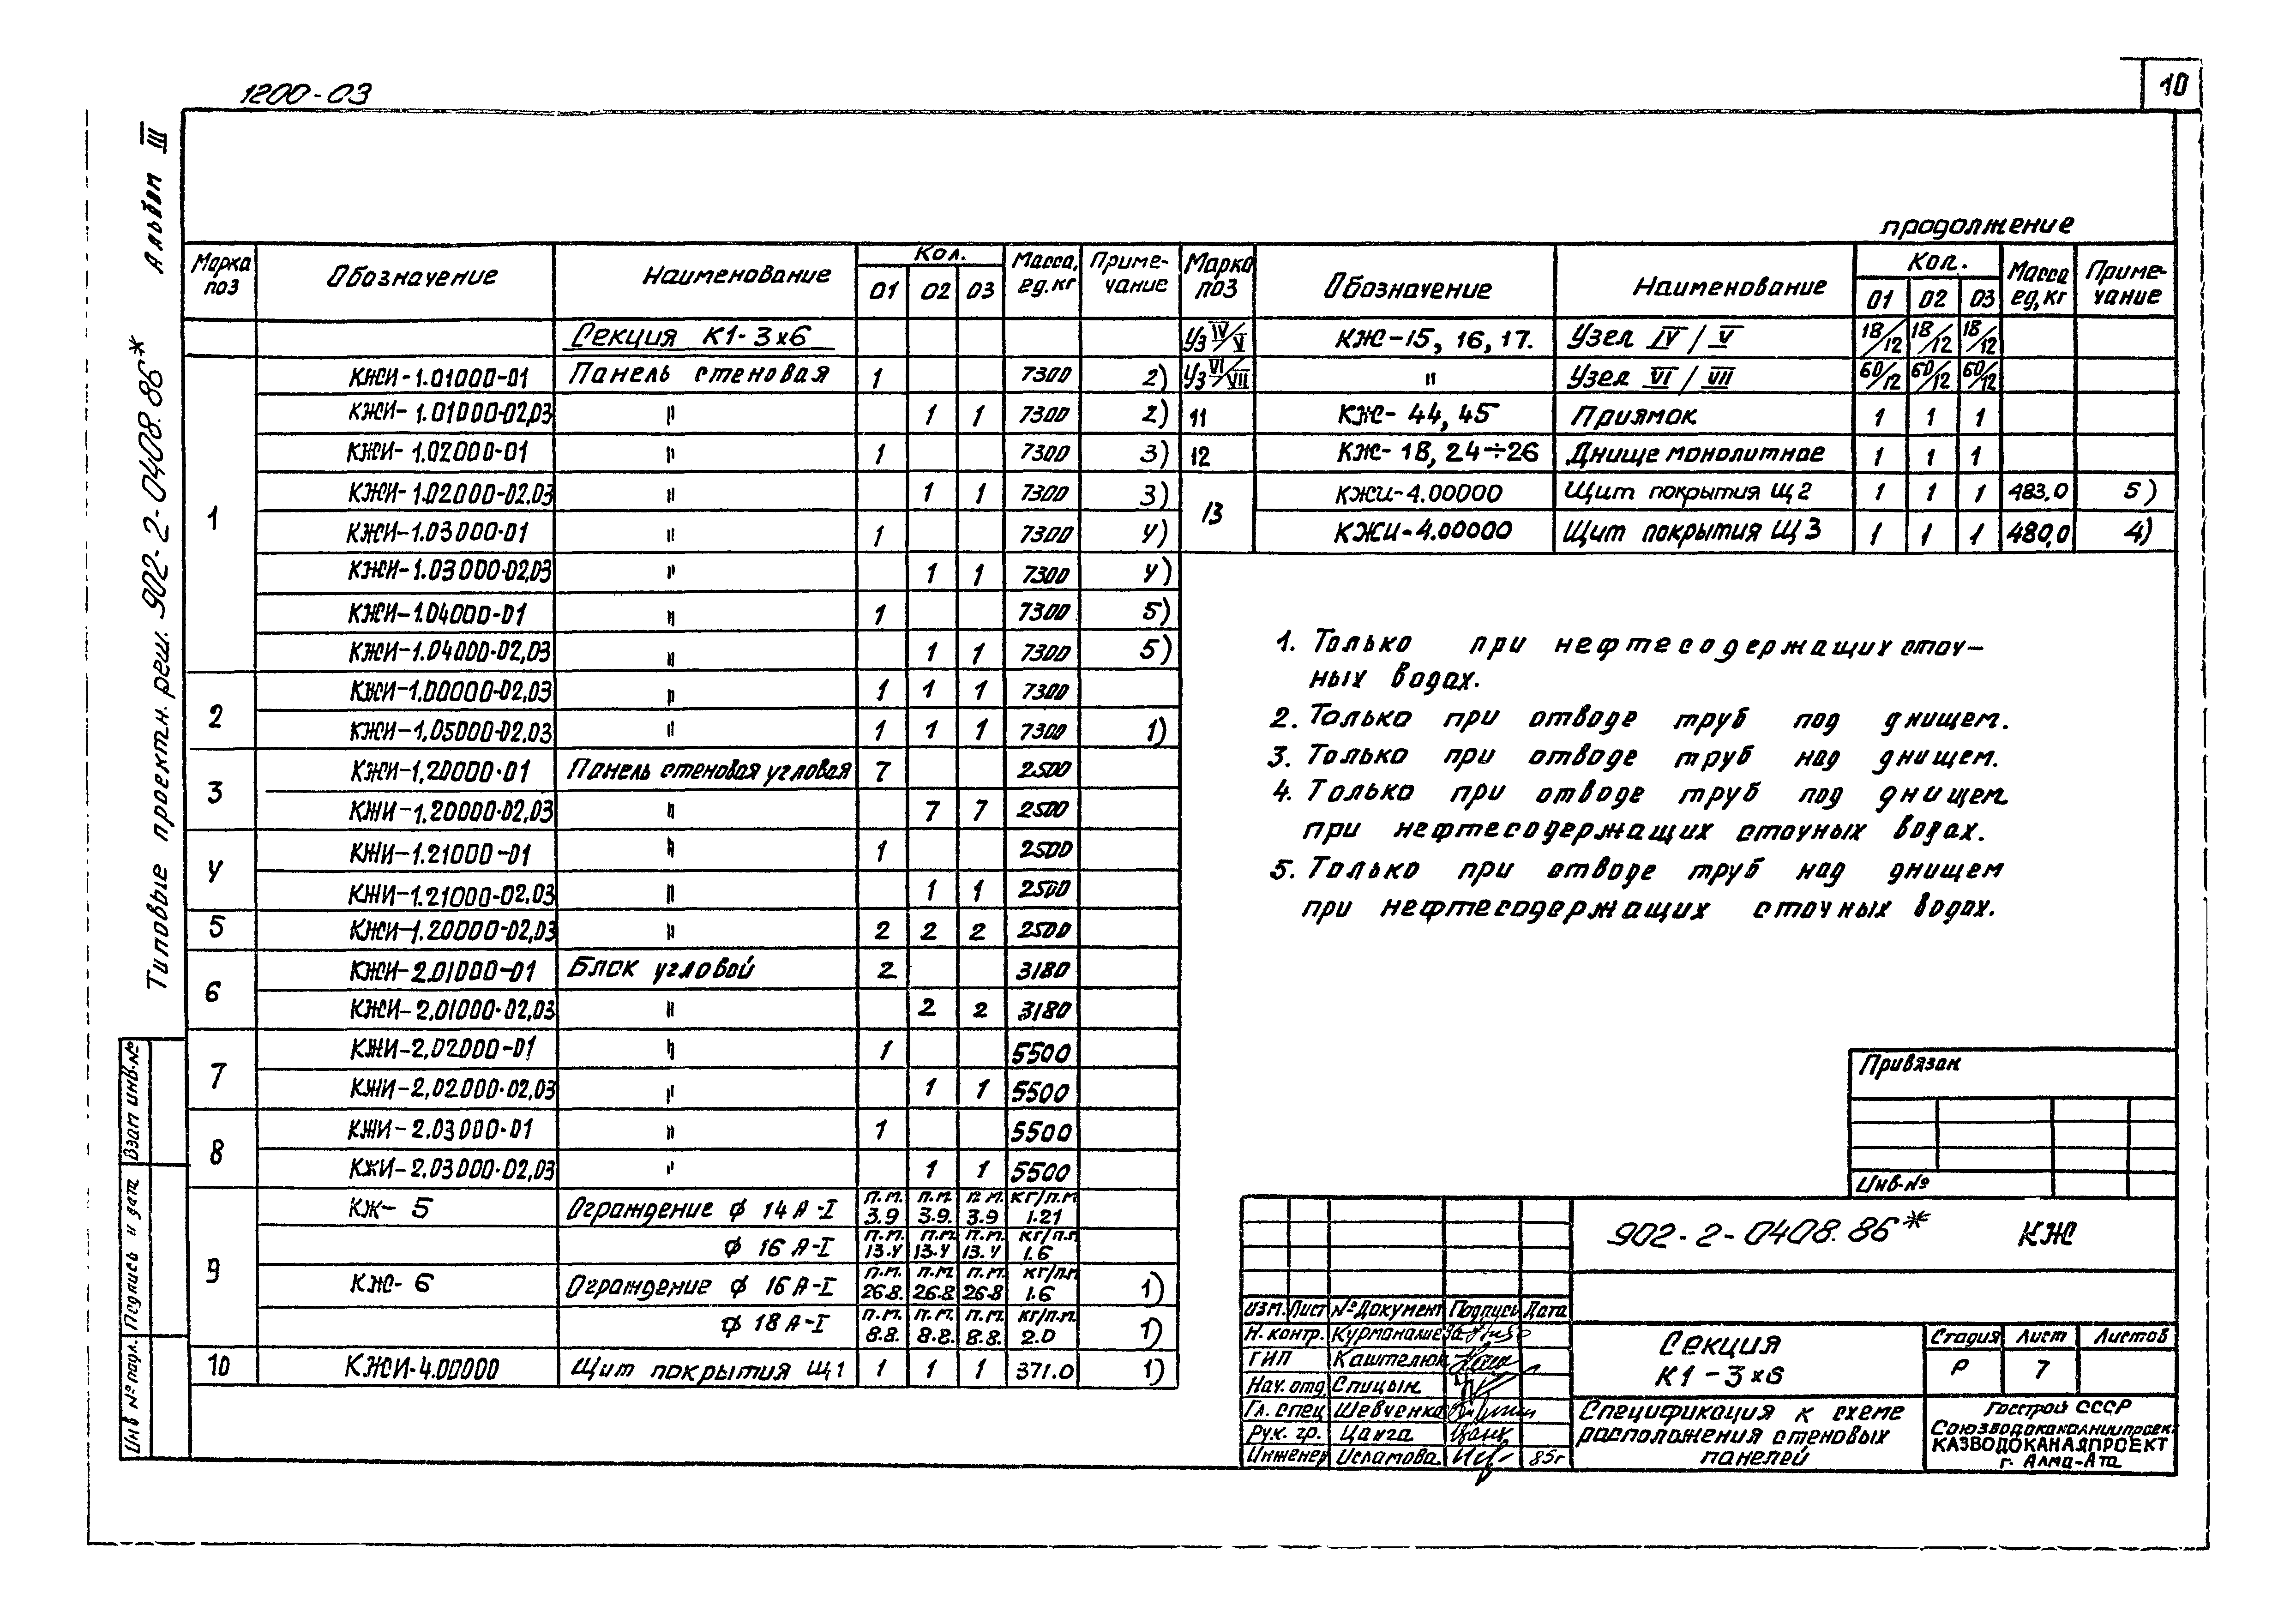 1200-03
10
Альбом III
Типовые проектн. реш. 902-2-0408.86*
продолжение
Марка поз | Обозначение | Наименование | Кол. 01 02 03 | Масса, ед.кг | Приме-чание
Секция К1-3х6
1
КЖИ-1.01000-01 Панель стеновая 1 7300 2)
КЖИ-1.01000-02,03 " 1 1 7300 2)
КЖИ-1.02000-01 " 1 7300 3)
КЖИ-1.02000-02.03 " 1 1 7300 3)
КЖИ-1.03000-01 " 1 7300 4)
КЖИ-1.03000-02,03 " 1 1 7300 4)
КЖИ-1.04000-01 " 1 7300 5)
КЖИ-1.04000-02,03 " 1 1 7300 5)
2
КЖИ-1.00000-02,03 " 1 1 1 7300
КЖИ-1.05000-02,03 " 1 1 1 7300 1)
3
КЖИ-1.20000-01 Панель стеновая угловая 7 2500
КЖИ-1.20000-02,03 " 7 7 2500
4
КЖИ-1.21000-01 " 1 2500
КЖИ-1.21000-02,03 " 1 1 2500
5 КЖИ-1.20000-02,03 " 2 2 2 2500
6
КЖИ-2.01000-01 Блок угловой 2 3180
КЖИ-2.01000-02,03 " 2 2 3180
7
КЖИ-2.02000-01 " 1 5500
КЖИ-2.02000-02,03 " 1 1 5500
8
КЖИ-2.03000-01 " 1 5500
КЖИ-2.03000-02,03 " 1 1 5500
9
КЖ-5 Ограждение ф 14 А-I п.м. 3.9 п.м. 3.9. п.м. 3.9 кг/п.м 1.21
ф 16 А-I п.м. 13.4 п.м. 13.4 п.м. 13.4 кг/п.м 1.6
КЖ-6 Ограждение ф 16 А-I п.м. 26.8. п.м. 26.8 п.м. 26.8 кг/п.м 1.6 1)
ф 18 А-I п.м. 8.8. п.м. 8.8. п.м. 8.8. кг/п.м. 2.0 1)
10 КЖИ-4.00000 Щит покрытия Щ1 1 1 1 371.0 1)
Марка поз | Обозначение | Наименование | Кол. 01 02 03 | Масса ед,кг | Приме-чание
Уз IV/V КЖ-15, 16, 17. Узел IV / V 18/12 18/12 18/12
Уз VI/VII " Узел VI / VII 60/12 60/12 60/12
11 КЖ-44, 45 Приямок 1 1 1
12 КЖ-18, 24÷26 Днище монолитное 1 1 1
13
КЖИ-4.00000 Щит покрытия Щ2 1 1 1 483,0 5)
КЖИ-4.00000 Щит покрытия Щ3 1 1 1 480,0 4)
1. Только при нефтесодержащих сточ-
ных водах.
2. Только при отводе труб под днищем.
3. Только при отводе труб над днищем.
4. Только при отводе труб под днищем
при нефтесодержащих сточных водах.
5. Только при отводе труб над днищем
при нефтесодержащих сточных водах.
Привязан
Инв.№
902-2-0408.86* КЖ
Изм. Лист №Документ Подпись Дата
Н. контр. Курманашева
ГИП Каштелюк
Нач. отд. Спицын
Гл. спец Шевченко
Рук. гр. Цанга
Инженер Исламова 85г
Секция
К1-3х6
Стадия Лист Листов
Р 7
Спецификация к схеме
расположения стеновых
панелей
Госстрой СССР
Союзводоканалниипроект
КАЗВОДОКАНАЛПРОЕКТ
г. Алма-Ата
Взам инв.№
Подпись и дата
Инв № подл.